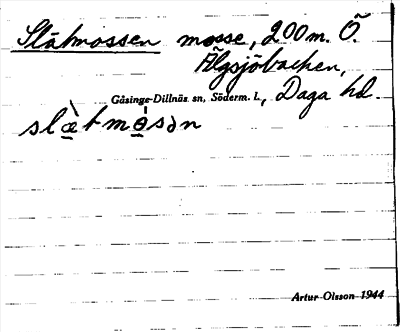 Slätmossen mosse, 200 m. Ö.
Älgsjöbacken,
Gåsinge-Dillnäs sn, Söderm. l., Daga hd.
slæ̀tmɵ́sən
Artur Olsson 1944